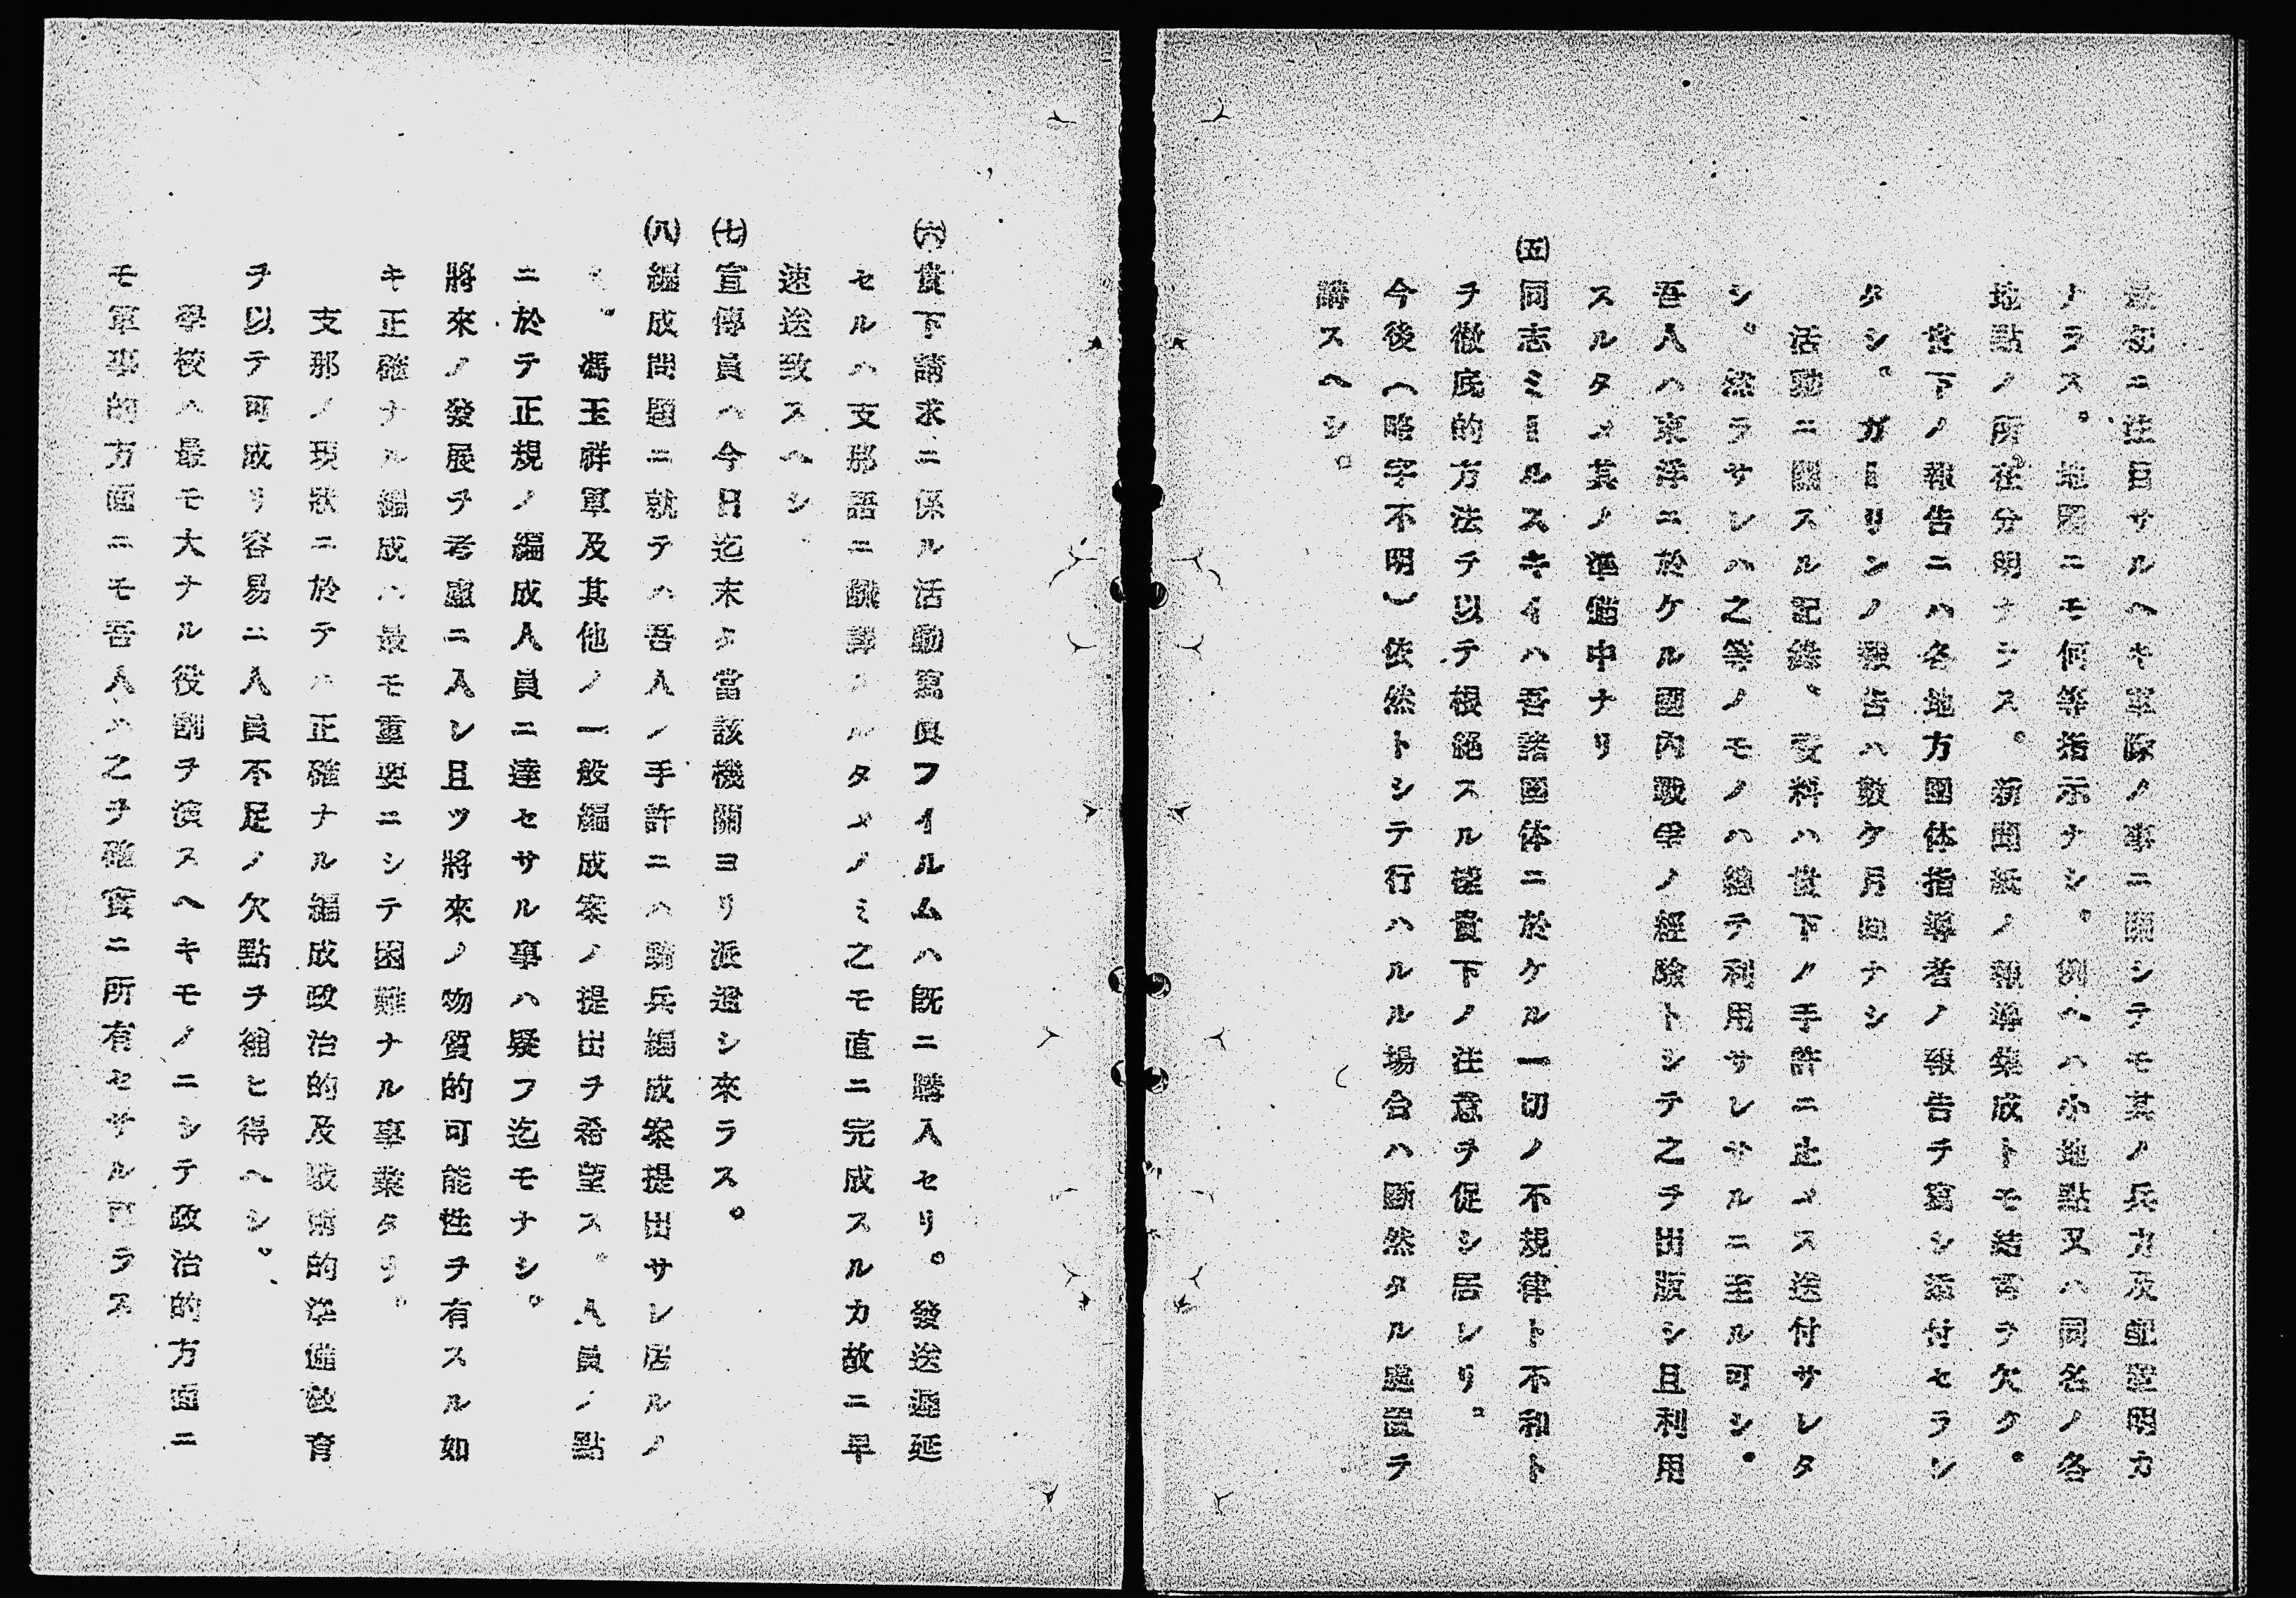 最初ニ注目サルヘキ軍隊ノ事ニ關シテモ其ノ兵力及配置明カ
ナラス。地圖ニモ何等指示ナシ。例ヘハ小地點又ハ同名ノ各
地點ノ所在分明ナラス。新聞紙ノ報導集成トモ結言ヲ欠ク。
貴下ノ報告ニハ各地方團体指導者ノ報告ヲ寫シ添付セラレ
タシ。ガーリンノ報告ハ數ケ月間ナシ
活動ニ關スル記錄、資料ハ貴下ノ手許ニ止メス送付サレタ
シ。然ラサレハ之等ノモノハ總テ利用サレサルニ至ル可シ。
吾人ハ東洋ニ於ケル國內戰爭ノ經驗トシテ之ヲ出版シ且利用
スルタメ其ノ準備中ナリ
(五)同志ミールスキイハ吾諸團体ニ於ケル一切ノ不規律ト不和ト
ヲ徹底的方法テ以テ根絕スル樣貴下ノ注意ヲ促シ居レリ。
今後(略字不明)依然トシテ行ハルル場合ハ斷然タル處置ヲ
講スヘシ。
(六)貴下請求ニ係ル活動寫眞フイルムハ旣ニ購入セリ。發送遲延
セルハ支那語ニ飜譯スルタメノミ之モ直ニ完成スルカ故ニ早
速送致スヘシ
(七)宣傳員ハ今日迄未タ當該機關ヨリ派遣シ來ラス。
(八)編成問題ニ就テハ吾人ノ手許ニハ騎兵編成案提出サレ居ルノ
ミ。馮玉祥軍及其他ノ一般編成案ノ提出ヲ希望ス。人員ノ點
ニ於テ正規ノ編成人員ニ達セサル事ハ疑フ迄モナシ。
將來ノ發展ヲ考慮ニ入レ且ツ將來ノ物質的可能性ヲ有スル如
キ正確ナル編成ハ最モ重要ニシテ困難ナル事業タリ。
支那ノ現狀ニ於テハ正確ナル編成政治的及戰術的準備敎育
ヲ以テ可成リ容易ニ人員不足ノ欠點ヲ補ヒ得ヘシ。
學校ハ最モ大ナル役割ヲ演スヘキモノニシテ政治的方面ニ
モ軍事的方面ニモ吾人ハ之ヲ確實ニ所有セサル可ラス